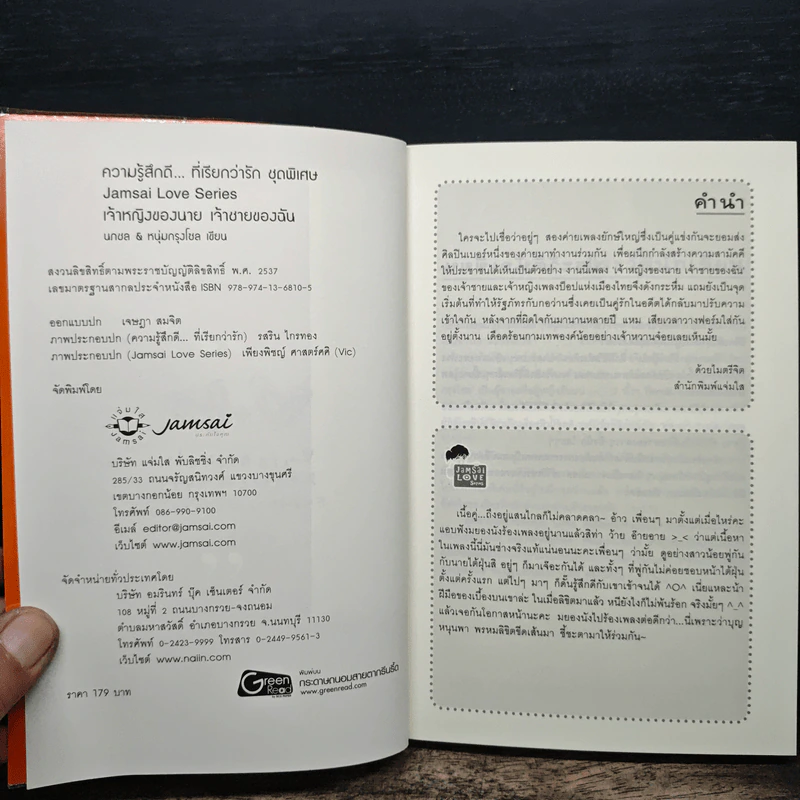 ความรู้สึกดี... ที่เรียกว่ารัก ชุดพิเศษ
Jamsai Love Series
เจ้าหญิงของนาย เจ้าชายของฉัน
นกชล & หนุ่มกรุงโซล เขียน
สงวนลิขสิทธิ์ตามพระราชบัญญัติลิขสิทธิ์ พ.ศ. 2537
เลขมาตรฐานสากลประจำหนังสือ ISBN 978-974-13-6810-5
ออกแบบปก เจษฎา สมจิต
ภาพประกอบปก (ความรู้สึกดี... ที่เรียกว่ารัก) รสริน ไกรทอง
ภาพประกอบปก (Jamsai Love Series) เพียงพิชญ์ ศาสตร์ศศิ (Vic)
จัดพิมพ์โดย
แจ่มใส
Jamsai
Jamsai
บริษัท แจ่มใส พับลิชชิ่ง จำกัด
285/33 ถนนจรัญสนิทวงศ์ แขวงบางขุนศรี
เขตบางกอกน้อย กรุงเทพฯ 10700
โทรศัพท์ 086-990-9100
อีเมล์ editor@jamsai.com
เว็บไซต์ www.jamsai.com
จัดจำหน่ายทั่วประเทศโดย
บริษัท อมรินทร์ บุ๊ค เซ็นเตอร์ จำกัด
108 หมู่ที่ 2 ถนนบางกรวย-จงถนอม
ตำบลมหาสวัสดิ์ อำเภอบางกรวย จ.นนทบุรี 11130
โทรศัพท์ 0-2423-9999 โทรสาร 0-2449-9561-3
เว็บไซต์ www.naiin.com
ราคา 179 บาท
Green
Read
พิมพ์บน
กระดาษถนอมสายตากรีนรี้ด
www.greenread.com
คำนำ
ใครจะไปเชื่อว่าอยู่ๆ สองค่ายเพลงยักษ์ใหญ่ซึ่งเป็นคู่แข่งกันจะยอมส่ง
ศิลปินเบอร์หนึ่งของค่ายมาทำงานร่วมกัน เพื่อผนึกกำลังสร้างความสามัคคี
ให้ประชาชนได้เห็นเป็นตัวอย่าง งานนี้เพลง 'เจ้าหญิงของนาย เจ้าชายของฉัน'
ของเจ้าชายและเจ้าหญิงเพลงป๊อปแห่งเมืองไทยจึงดังกระหึ่ม แถมยังเป็นจุด
เริ่มต้นที่ทำให้รัฐภัทรกับกอว่านซึ่งเคยเป็นคู่รักในอดีตได้กลับมาปรับความ
เข้าใจกัน หลังจากที่ผิดใจกันมานานหลายปี แหม เสียเวลาวางฟอร์มใส่กัน
อยู่ตั้งนาน เดือดร้อนกามเทพองค์น้อยอย่างเจ้าหวานจ๋อยเลยเห็นมั้ย
ด้วยไมตรีจิต
สำนักพิมพ์แจ่มใส
JAMSAI
LOVE
Series
เนื้อคู่...ถึงอยู่แสนไกลก็ไม่คลาดคลา~ อ้าว เพื่อนๆ มาตั้งแต่เมื่อไหร่คะ
แอบฟังมยองนังร้องเพลงอยู่นานแล้วสิท่า ว้าย อ๊ายอาย >_< ว่าแต่เนื้อหา
ในเพลงนี้นี่มันช่างจริงแท้แน่นอนนะคะเพื่อนๆ ว่ามั้ย ดูอย่างสาวน้อยพู่กัน
กับนายไต้ฝุ่นสิ อยู่ๆ ก็มาเจอะกันได้ และทั้งๆ ที่พู่กันไม่ค่อยชอบหน้าไต้ฝุ่น
ตั้งแต่ครั้งแรก แต่ไปๆ มาๆ ก็ดันรู้สึกดีกับเขาเข้าจนได้ ^O^ เนี่ยแหละน้า
ฝีมือของเบื้องบนเขาล่ะ ในเมื่อลิขิตมาแล้ว หนียังไงก็ไม่พ้นร้อก จริงมั้ยๆ ^_^
แล้วเจอกันโอกาสหน้านะคะ มยองนังไปร้องเพลงต่อดีกว่า...นี่เพราะว่าบุญ
หนุนพา พรหมลิขิตขีดเส้นมา ชี้ชะตามาให้ร่วมกัน~